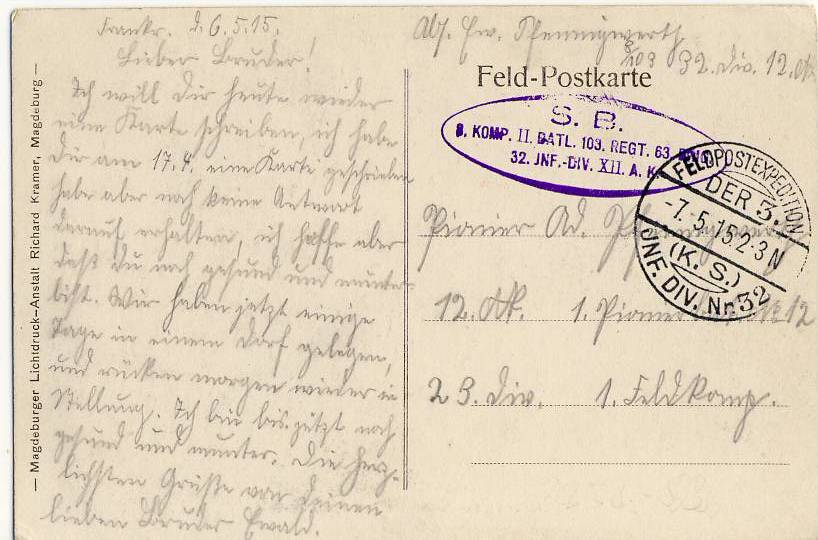 Frankr. d. 6.5.15.
Lieber Bruder!
Ich will dir heute wieder
eine Karte schreiben, ich habe
dir am 17.4. eine Karte geschrieben
habe aber noch keine Antwort
darauf erhalten, ich hoffe aber
daß du noch gesund und munter
bist. Wir haben jetzt einige
Tage in einem Dorf gelegen,
und rücken morgen wieder in
Stellung. Ich bin bis jetzt noch
gesund und munter. Die herz-
lichsten Grüße von deinen
lieben Bruder Ewald.
— Magdeburger Lichtdruck-Anstalt Richard Kramer, Magdeburg —
Abs. Ew. Pfennigwerth
8/103 32. Div. 12.
Feld-Postkarte
S. B.
8. KOMP. II. BATL. 103. REGT. 63.
32. JNF.-DIV. XII. A. K.
FELDPOSTEXPEDITION
DER 3.
-7.5.15 2-3 N
(K. S.)
JNF. DIV. Nr. 32
Pionier Ad. Pfennigwerth
12. 1. Pionier 12
23. Div. 1. Feldkomp.